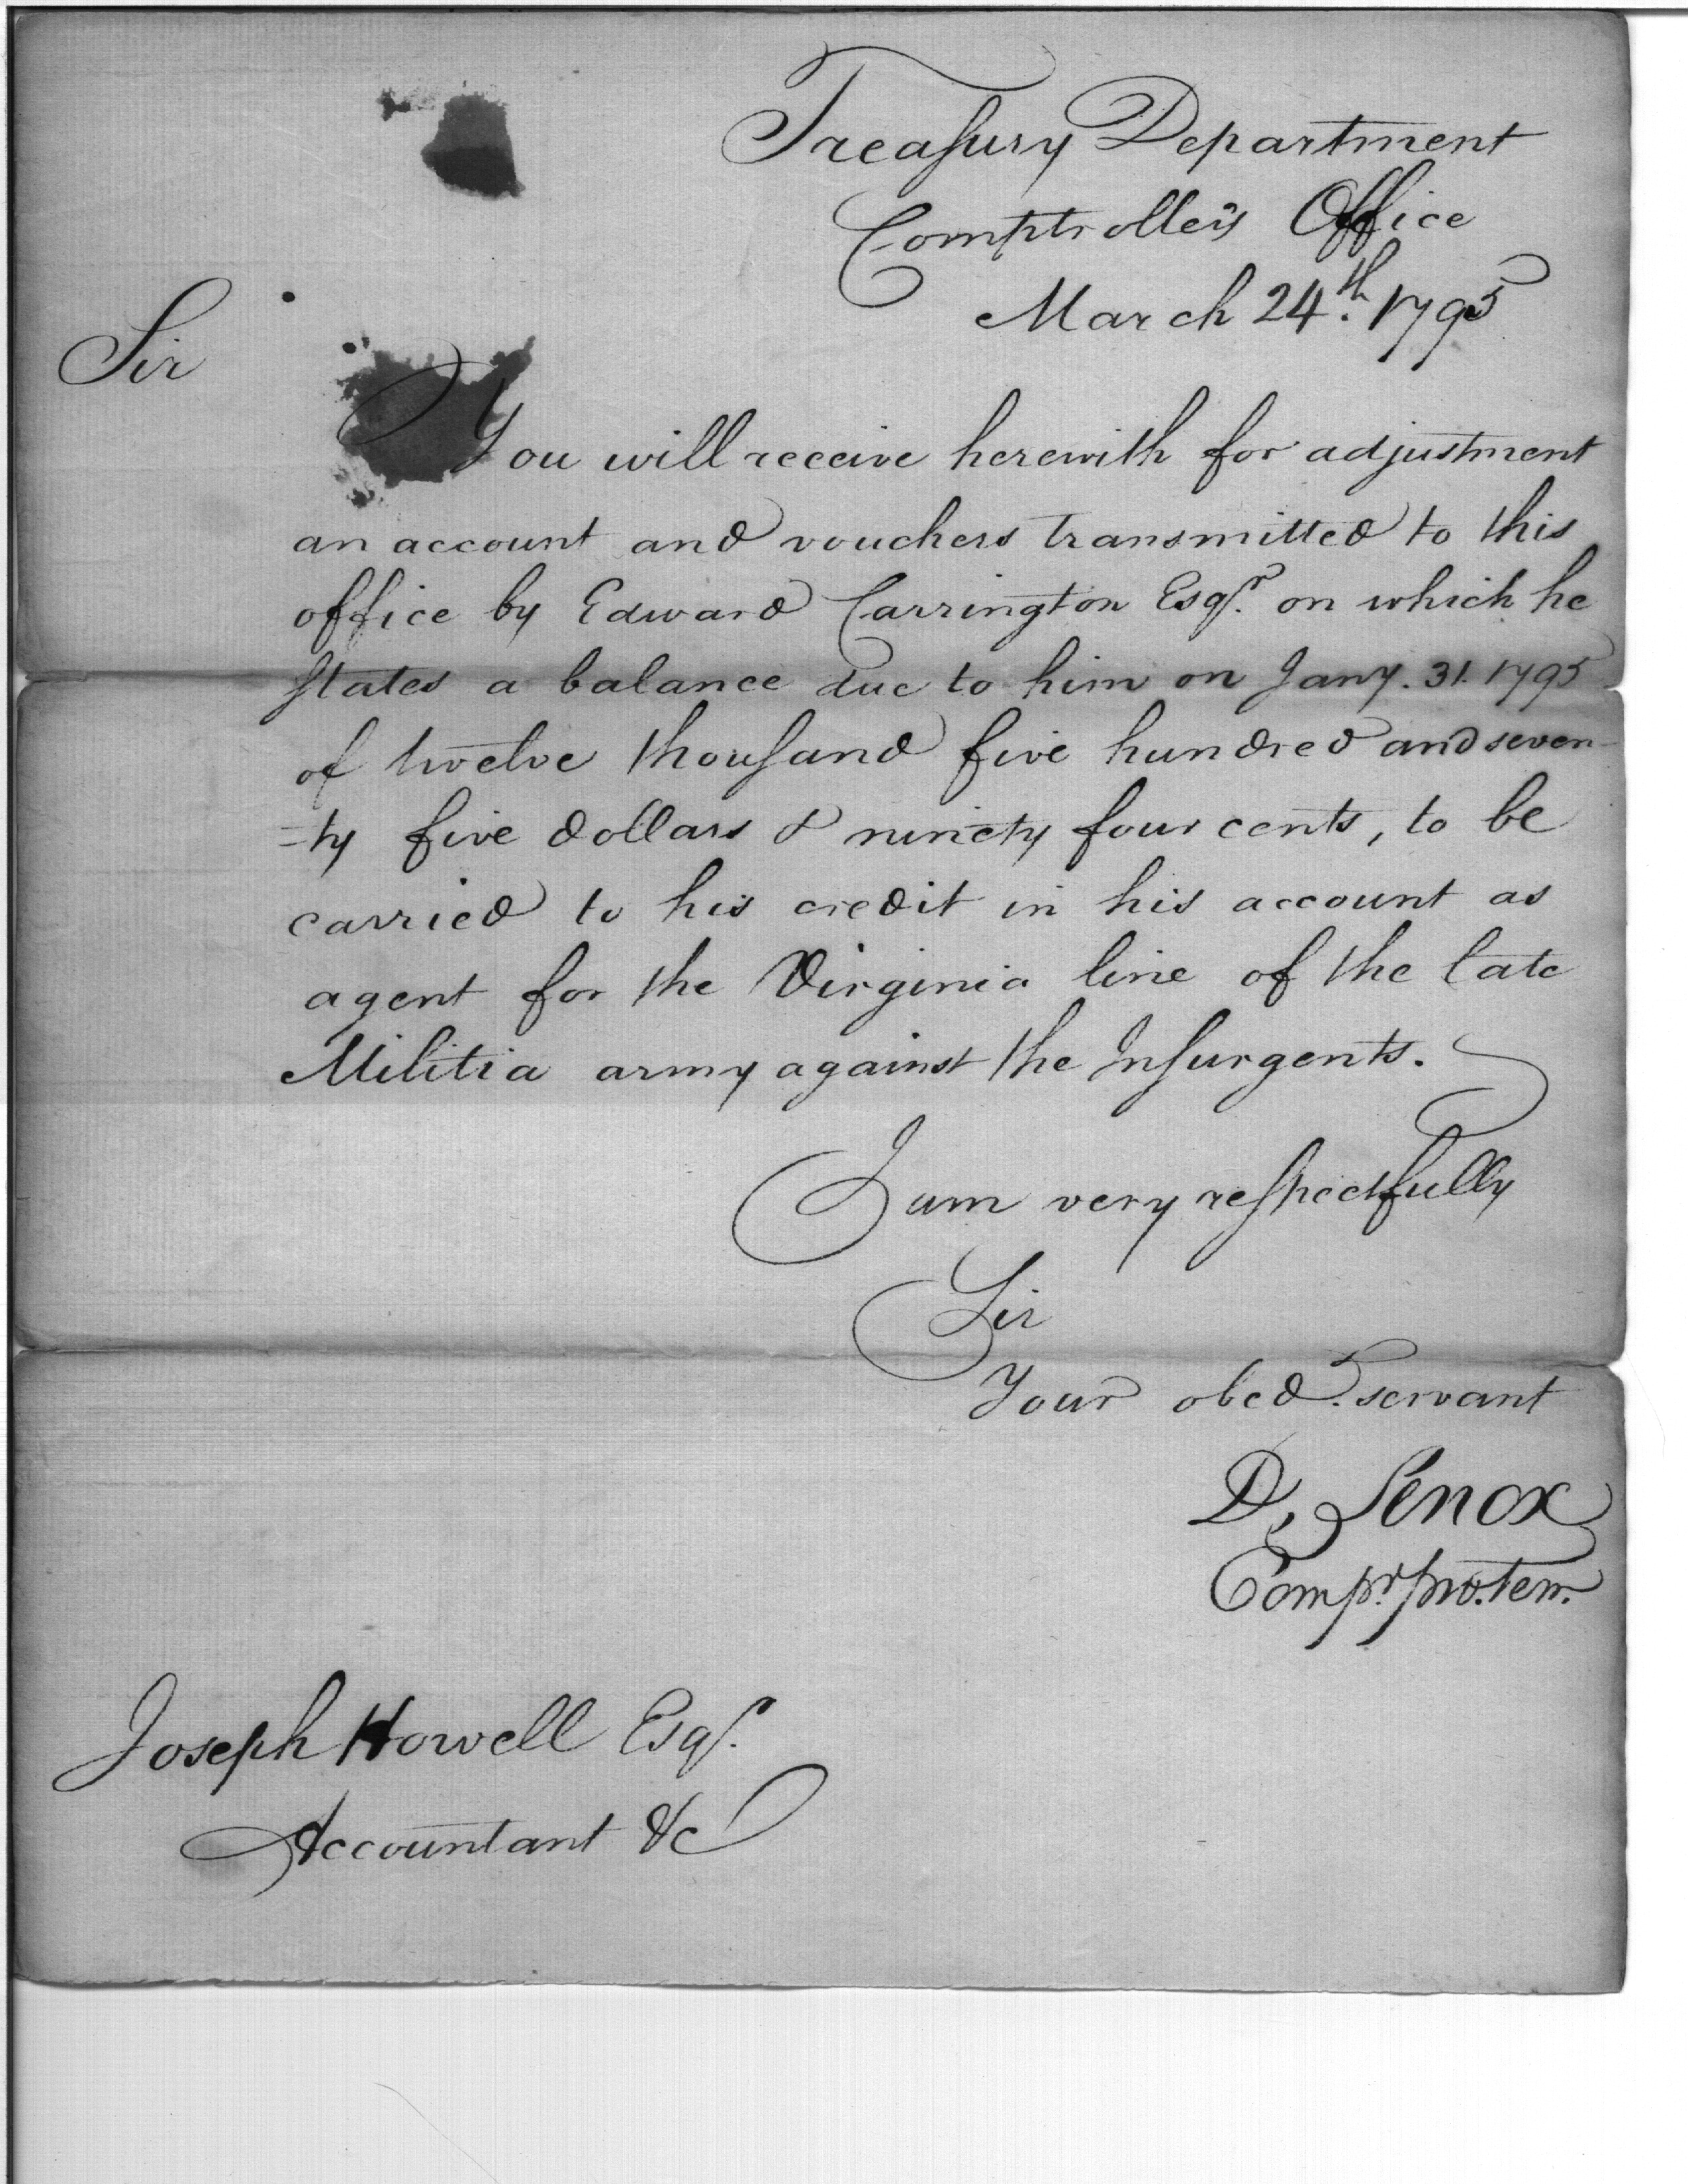 Treaſury Department
Comptroller's Office
March 24th. 1795
Sir
You will receive herewith for adjustment
an account and vouchers transmitted to this
office by Edward Carrington Esqr. on which he
ſtates a balance due to him on Jany. 31. 1795
of twelve thouſand five hundred and seven-
=ty five dollars & ninety four cents, to be
carried to his credit in his account as
agent for the Virginia line of the late
Militia army against the Inſurgents.
I am very reſpectfully
Sir
Your obedt. servant
D, Lenox
Compr. pro. tem.
Joseph Howell Esqr.
Accountant &c